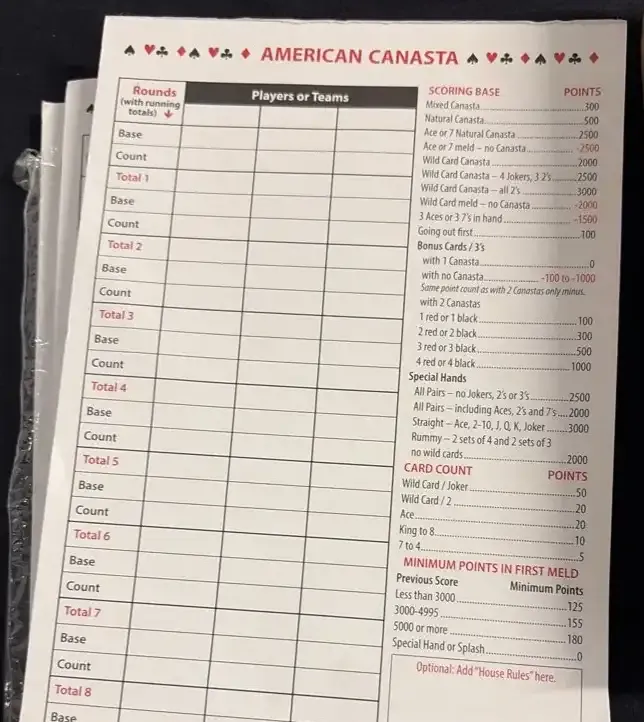 AMERICAN CANASTA
Rounds
(with running
totals)
Players or Teams
Base
Count
Total 1
Base
Count
Total 2
Base
Count
Total 3
Base
Count
Total 4
Base
Count
Total 5
Base
Count
Total 6
Base
Count
Total 7
Base
Count
Total 8
Base
SCORING BASE POINTS
Mixed Canasta 300
Natural Canasta 500
Ace or 7 Natural Canasta 2500
Ace or 7 meld – no Canasta -2500
Wild Card Canasta 2000
Wild Card Canasta – 4 Jokers, 3 2's 2500
Wild Card Canasta – all 2's 3000
Wild Card meld – no Canasta -2000
3 Aces or 3 7's in hand -1500
Going out first 100
Bonus Cards / 3's
with 1 Canasta 0
with no Canasta -100 to -1000
Same point count as with 2 Canastas only minus.
with 2 Canastas
1 red or 1 black 100
2 red or 2 black 300
3 red or 3 black 500
4 red or 4 black 1000
Special Hands
All Pairs – no Jokers, 2's or 3's 2500
All Pairs – including Aces, 2's and 7's 2000
Straight – Ace, 2-10, J, Q, K, Joker 3000
Rummy – 2 sets of 4 and 2 sets of 3
no wild cards 2000
CARD COUNT POINTS
Wild Card / Joker 50
Wild Card / 2 20
Ace 20
King to 8 10
7 to 4 5
MINIMUM POINTS IN FIRST MELD
Previous Score Minimum Points
Less than 3000 125
3000-4995 155
5000 or more 180
Special Hand or Splash 0
Optional: Add "House Rules" here.